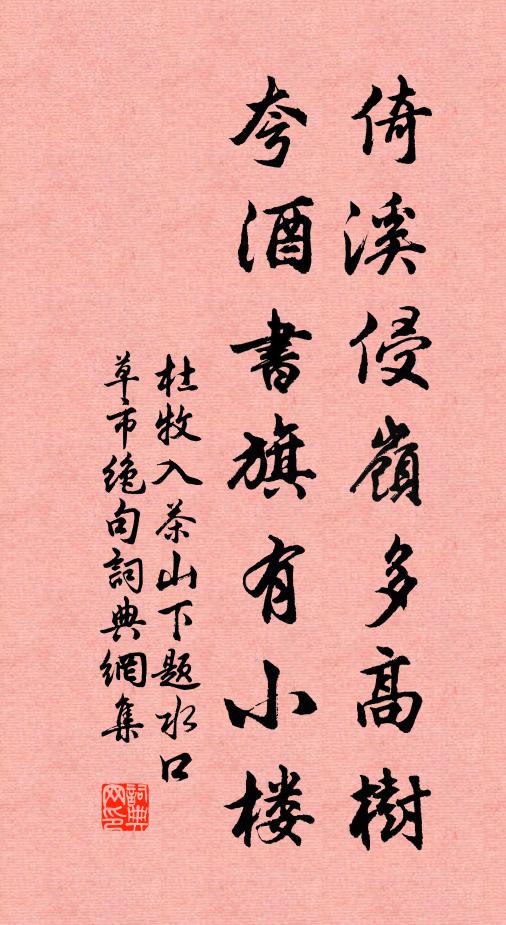 倚溪侵嶺多高樹
夸酒書旗有小楼
杜牧入茶山下题水口
草市绝句詞典網集
詞典网印